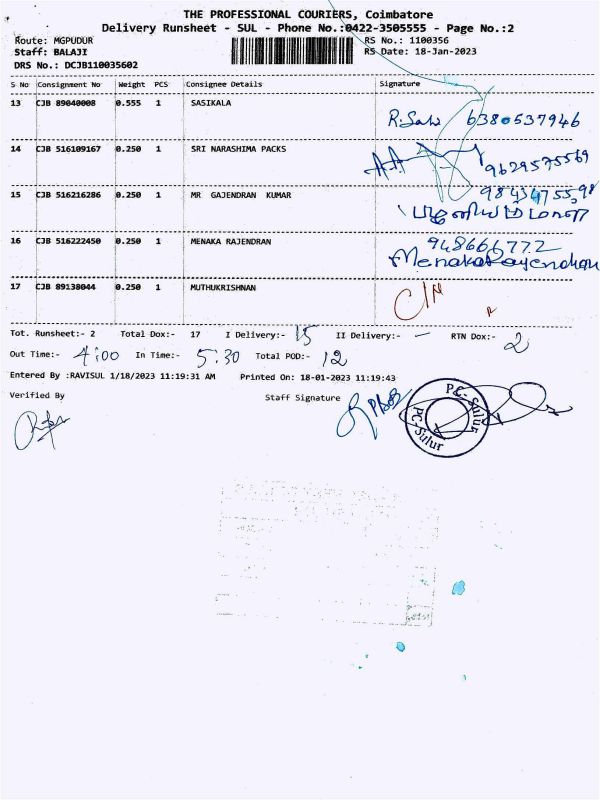 THE PROFESSIONAL COURIERS, Coimbatore
Delivery Runsheet - SUL - Phone No.:0422-3505555 - Page No.:2
Route: MGPUDUR RS No.: 1100356
Staff: BALAJI RS Date: 18-Jan-2023
DRS No.: DCJB110035602
S No Consignment No Weight PCS Consignee Details Signature
13 CJB 89040008 0.555 1 SASIKALA
R.Sasi 6380537946
14 CJB 516109167 0.250 1 SRI NARASHIMA PACKS
9629575569
15 CJB 516216286 0.250 1 MR GAJENDRAN KUMAR
16 CJB 516222450 0.250 1 MENAKA RAJENDRAN 9486661772
Menaka Rajendran
17 CJB 89138044 0.250 1 MUTHUKRISHNAN
Tot. Runsheet:- 2 Total Dox:- 17 I Delivery:- 15 II Delivery:- — RTN Dox:- 2
Out Time:- 4:00 In Time:- 5:30 Total POD:- 12
Entered By :RAVISUL 1/18/2023 11:19:31 AM Printed On: 18-01-2023 11:19:43
Verified By Staff Signature
PC-Sulur
PC-Sulur